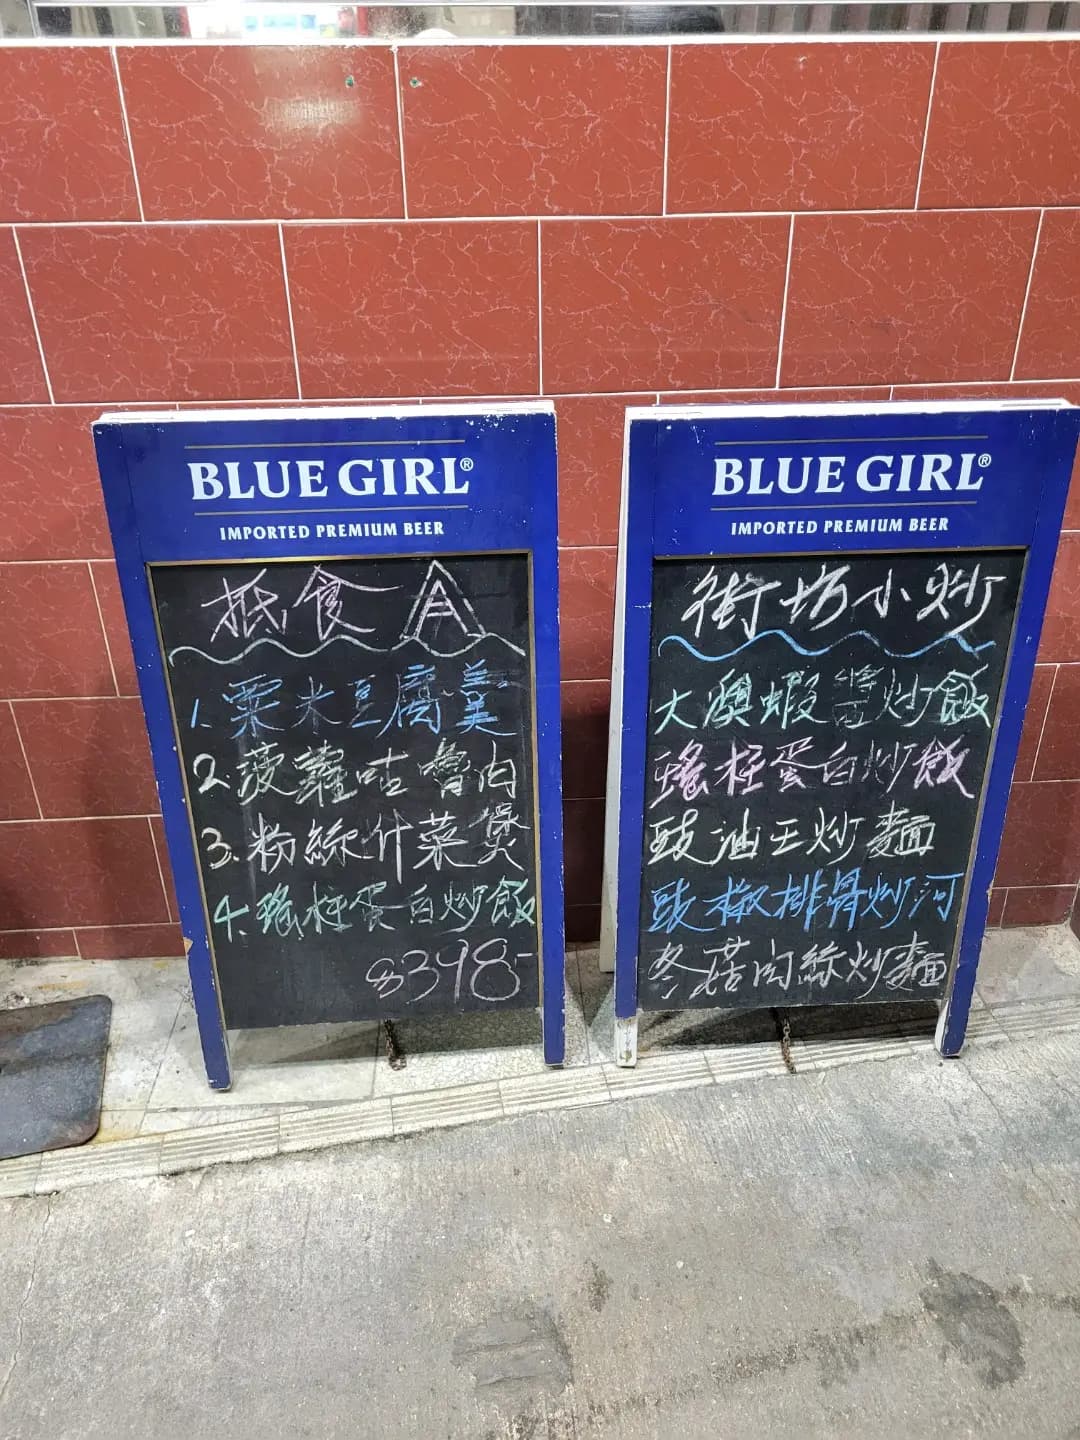 BLUE GIRL®
IMPORTED PREMIUM BEER
抵食 A
1. 粟米豆腐羹
2. 菠蘿咕嚕肉
3. 粉絲什菜煲
4. 瑤柱蛋白炒飯
$398-
BLUE GIRL®
IMPORTED PREMIUM BEER
街坊小炒
大澳蝦醬炒飯
瑤柱蛋白炒飯
豉油王炒麵
豉椒排骨炒河
冬菇肉絲炒麵